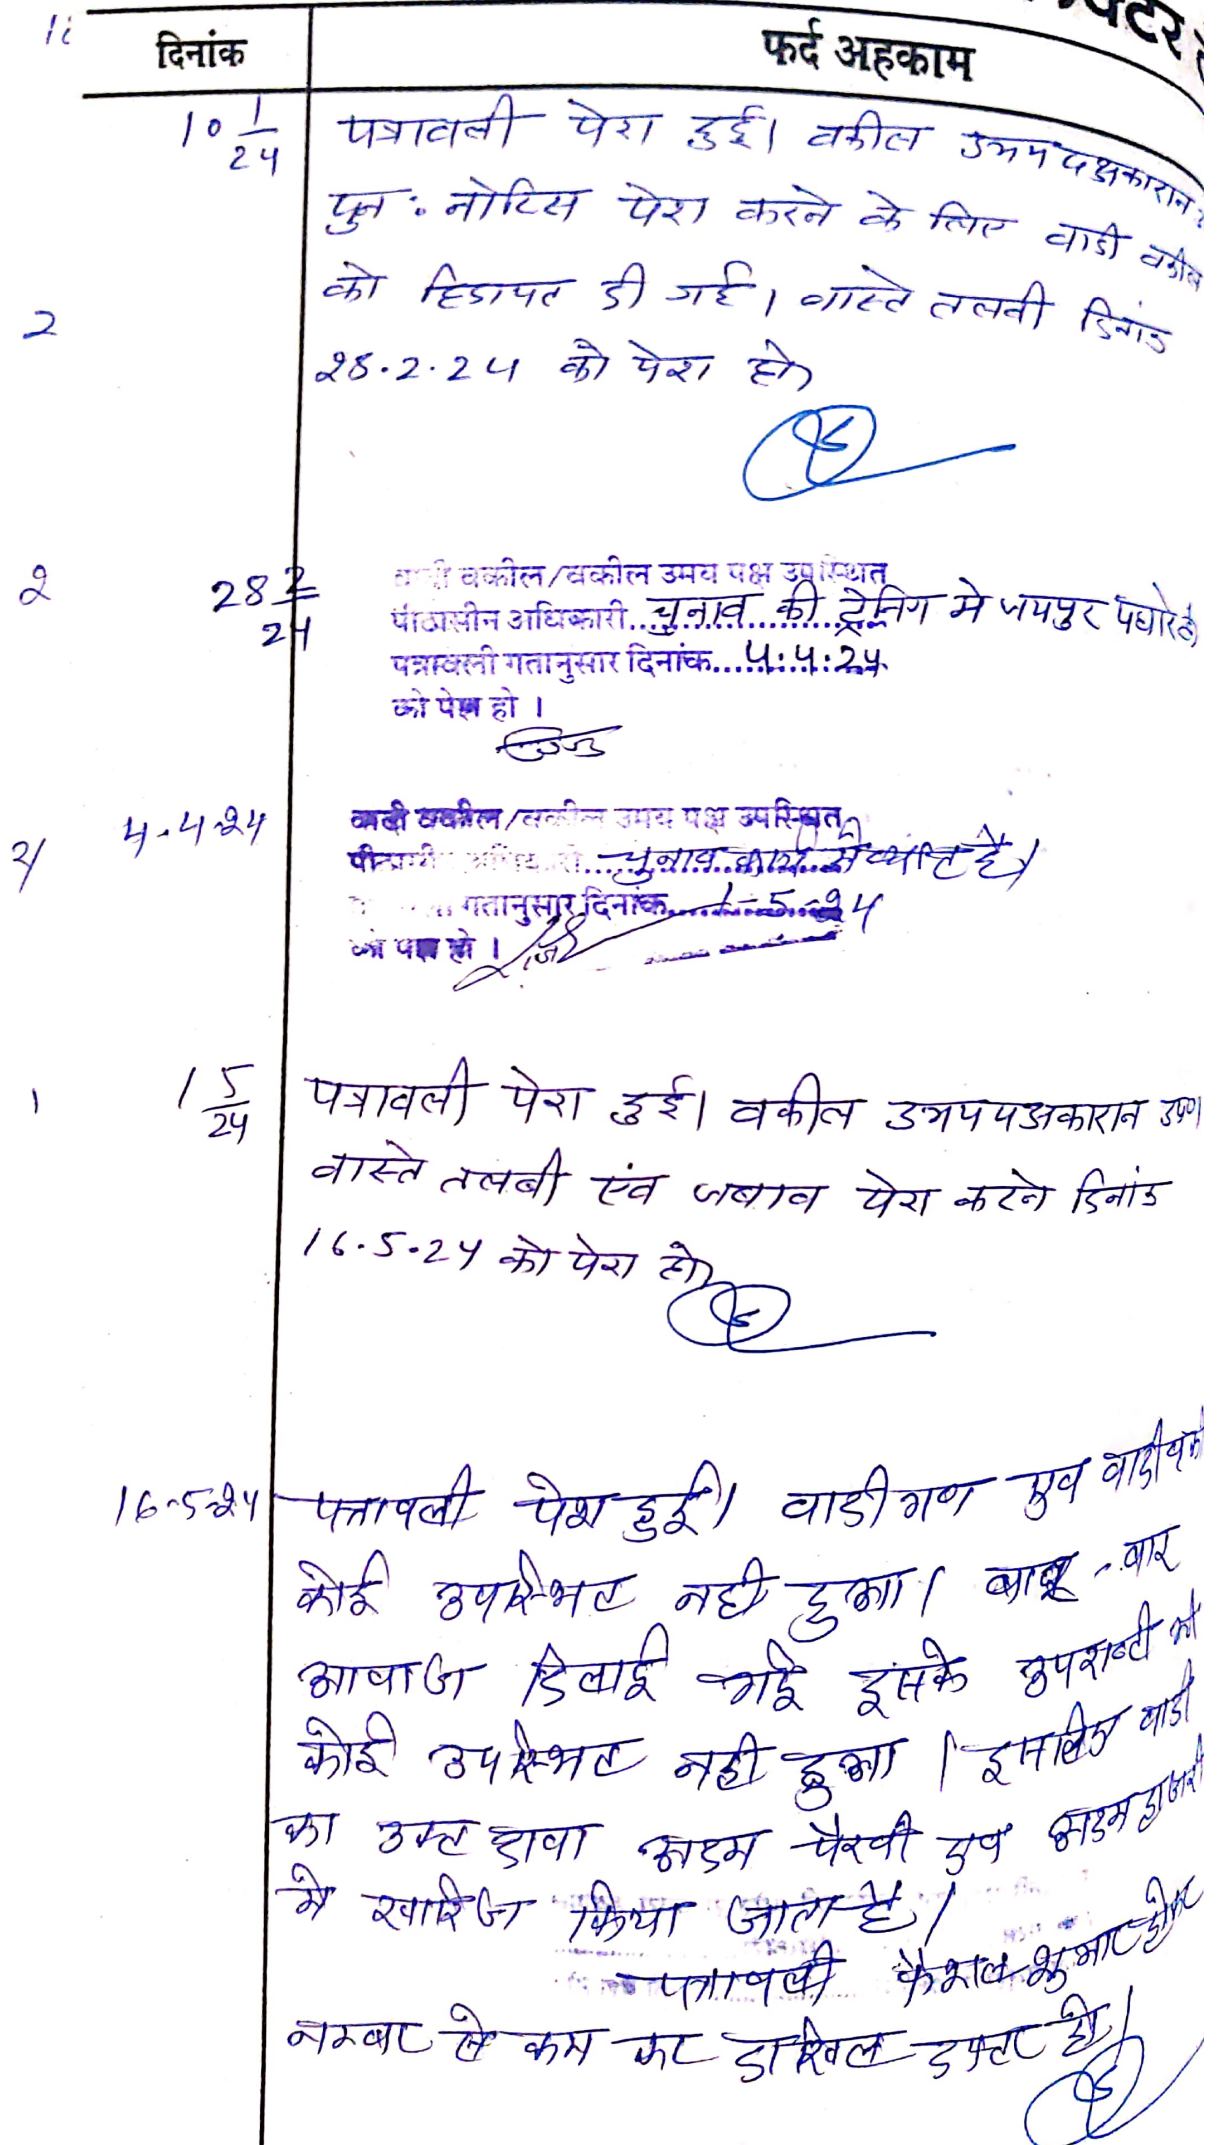 दिनांक फर्द अहकाम
10 1/24 पत्रावली पेश हुई। वकील उभयपक्षकारान
पुनः नोटिस पेश करने के लिए वादी वकील
को हिदायत दी गई। वास्ते तलबी दिनांक
2
28.2.24 को पेश हो
2 28 2/24 वकील/वकील उभय पक्ष उपस्थित
पीठासीन अधिकारी..चुनाव की ट्रेनिग मे जयपुर पधारे है
पत्रावली गतानुसार दिनांक....4.4.24
को पेश हो ।
2/ 4-4-24 वादी वकील/वकील उभय पक्ष उपस्थित
चुनाव कार्य मे व्यस्त है।
गतानुसार दिनांक....1-5-24
को पेश हो ।
1 1 5/24 पत्रावली पेश हुई। वकील उभयपक्षकारान उप०
वास्ते तलबी एंव जबाव पेश करने दिनांक
16.5.24 को पेश हो
16-5-24 पत्रावली पेश हुई। वादीगण एव वादी
कोई उपस्थित नही हुआ। बार-बार
आवाज दिलाई गई इसके उपरान्त भी
कोई उपस्थित नही हुआ। इसलिए वादी
का उक्त दावा अदम पैरवी एवं अदम हाजरी
मे खारिज किया जाता है।
पत्रावली फैसल शुमार होकर
नम्बर से कम कर दाखिल दफ्तर हो।